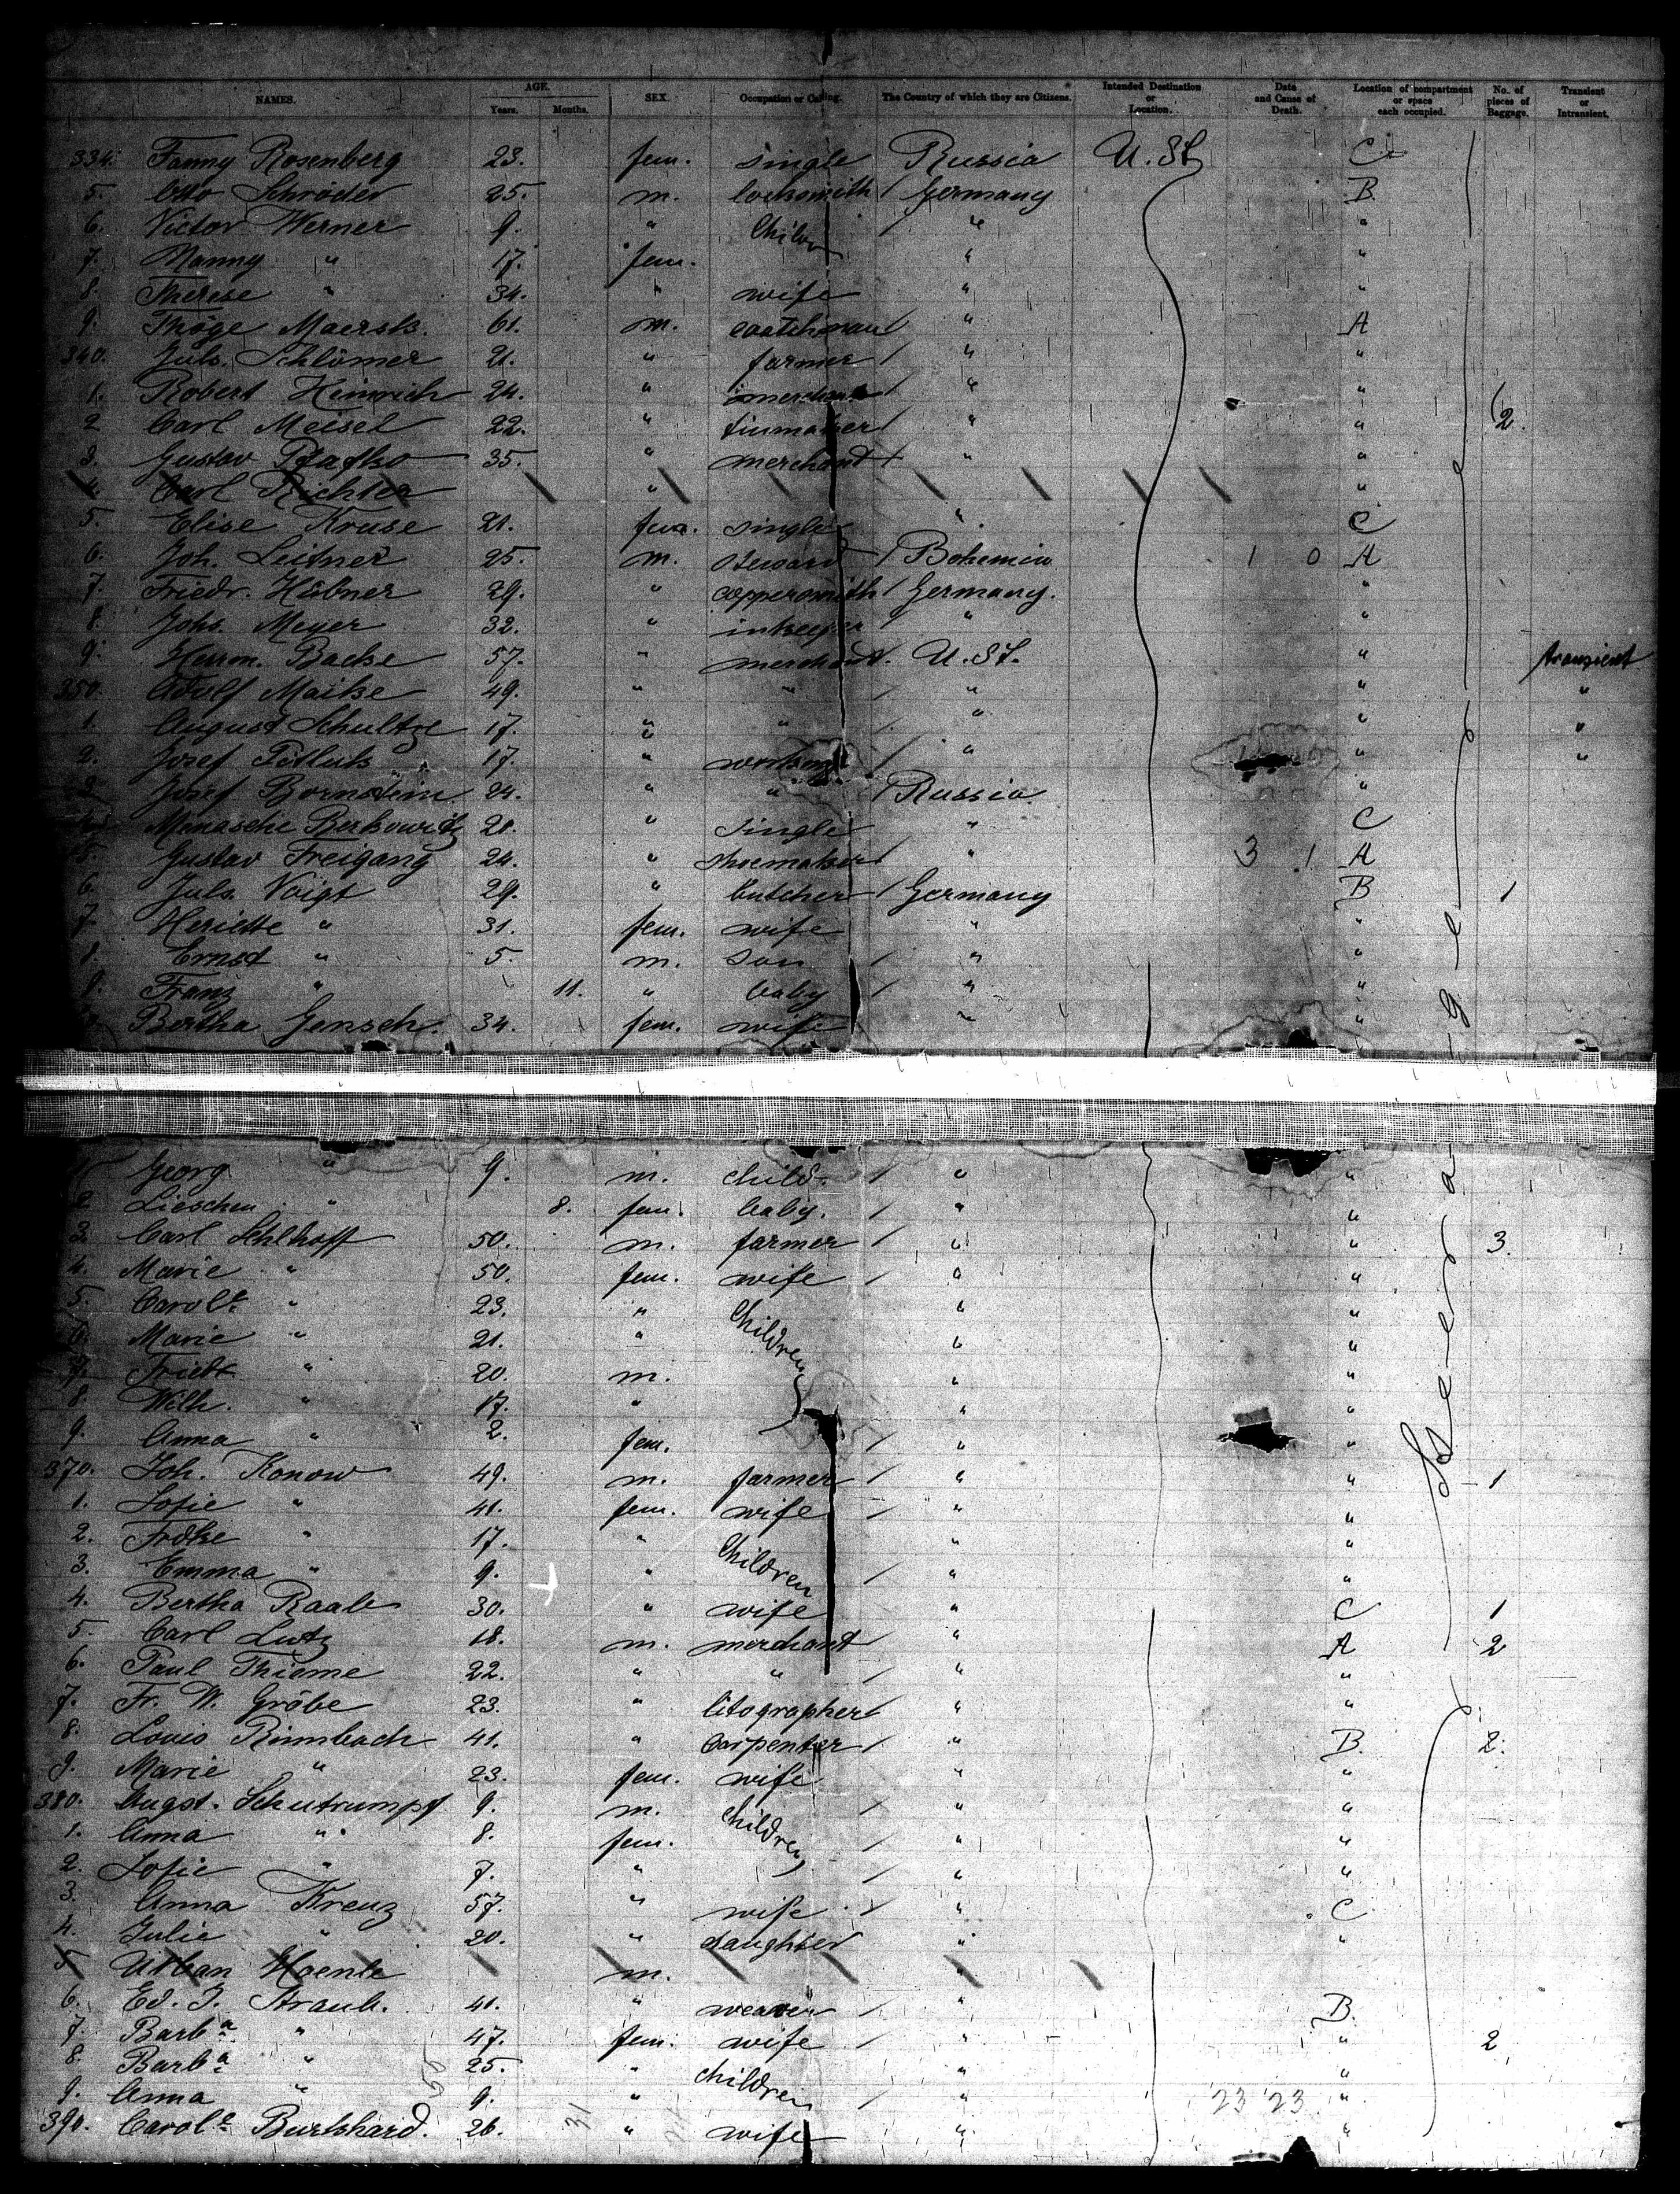 NAMES. AGE. Years. Months. SEX. Occupation or Calling. The Country of which they are Citizens. Intended Destination or Location. Date and Cause of Death. Location of compartment or space each occupied. No. of pieces of Baggage. Transient or Intransient.
334. Fanny Rosenberg 23. fem. single Russia U. St. C
5. Otto Schröder 25. m. locksmith Germany B.
6. Victor Werner 9. " Child " "
7. Nanny " 17. fem. " "
8. Therese " 34. " wife " "
9. Thöge Maersk. 61. m. coatchman " A
340. Juls. Schlömer 21. " farmer " "
1. Robert Heinrich 24. " merchant " "
2 Carl Meisel 22. " " " 2.
3. Gustav 35. " merchant " "
4. Carl Richter " "
5. Elise Kruse 21. fem. single " C
6. Joh. Leitner 25. m. Steward Bohemia 1 0 A
7. Friedr. Hübner 29. " coppersmith Germany. "
8. Johs. Meyer 32. " " "
9. Herm. Backe 57. " merchant. U. St. " transient
350. Adolf Maike 49. " " " " "
1. August Schultze 17. " " " " "
2. Josef Pitluk 17. " " " "
3. Josef Bornstein 24. " " Russia "
4. Menasche Berkowitz 20. " single " C
5. Gustav Freigang 24. " shoemaker " 3 1 A
6. Juls. Voigt 29. " butcher Germany B 1
7. Heriette " 31. fem. wife " "
8. Ernst " 5. m. son " "
9. Franz " 11. " baby " "
Bertha Gensch. 34. fem. wife " "
Georg " 9. m. child. " "
2. Lieschen " 8. fem. baby. " "
3. Carl Sehlhoff 50. m. farmer " " 3.
4. Marie " 50. fem. wife " "
5. Carole " 23. " Children " "
6. Marie " 21. " " "
7. Friedr " 20. m. " "
8. Wilh. " 17. " " "
9. Anna " 2. fem. " "
370. Joh. Konow 49. m. farmer " " 1
1. Sofie " 41. fem. wife " "
2. Frdke " 17. " Children " "
3. Emma " 9. " " "
4. Bertha Raab 30. " wife " C 1
5. Carl Lutz 18. m. merchant " A 2
6. Paul Thieme 22. " " " "
7. Fr. W. Gröbe 23. " litographer " "
8. Louis Rimbach 41. " carpenter " B. 2.
9. Marie " 23. fem. wife " "
380. Augst. Schutrumpf 9. m. Children " "
1. Anna " 8. fem. " "
2. Sofie " 7. " " "
3. Anna Kreuz 57. " wife " C
4. Julie " 20. " daughter " "
5 Urban Haenle m. "
6. Ed. J. Straub. 41. " weaver " B.
7. Barba " 47. fem. wife " " 2
8. Barba " 25. " children " "
9. Anna " 9. " " 23 23 "
390. Carole Burkhard. 26. " wife " "
Steerage